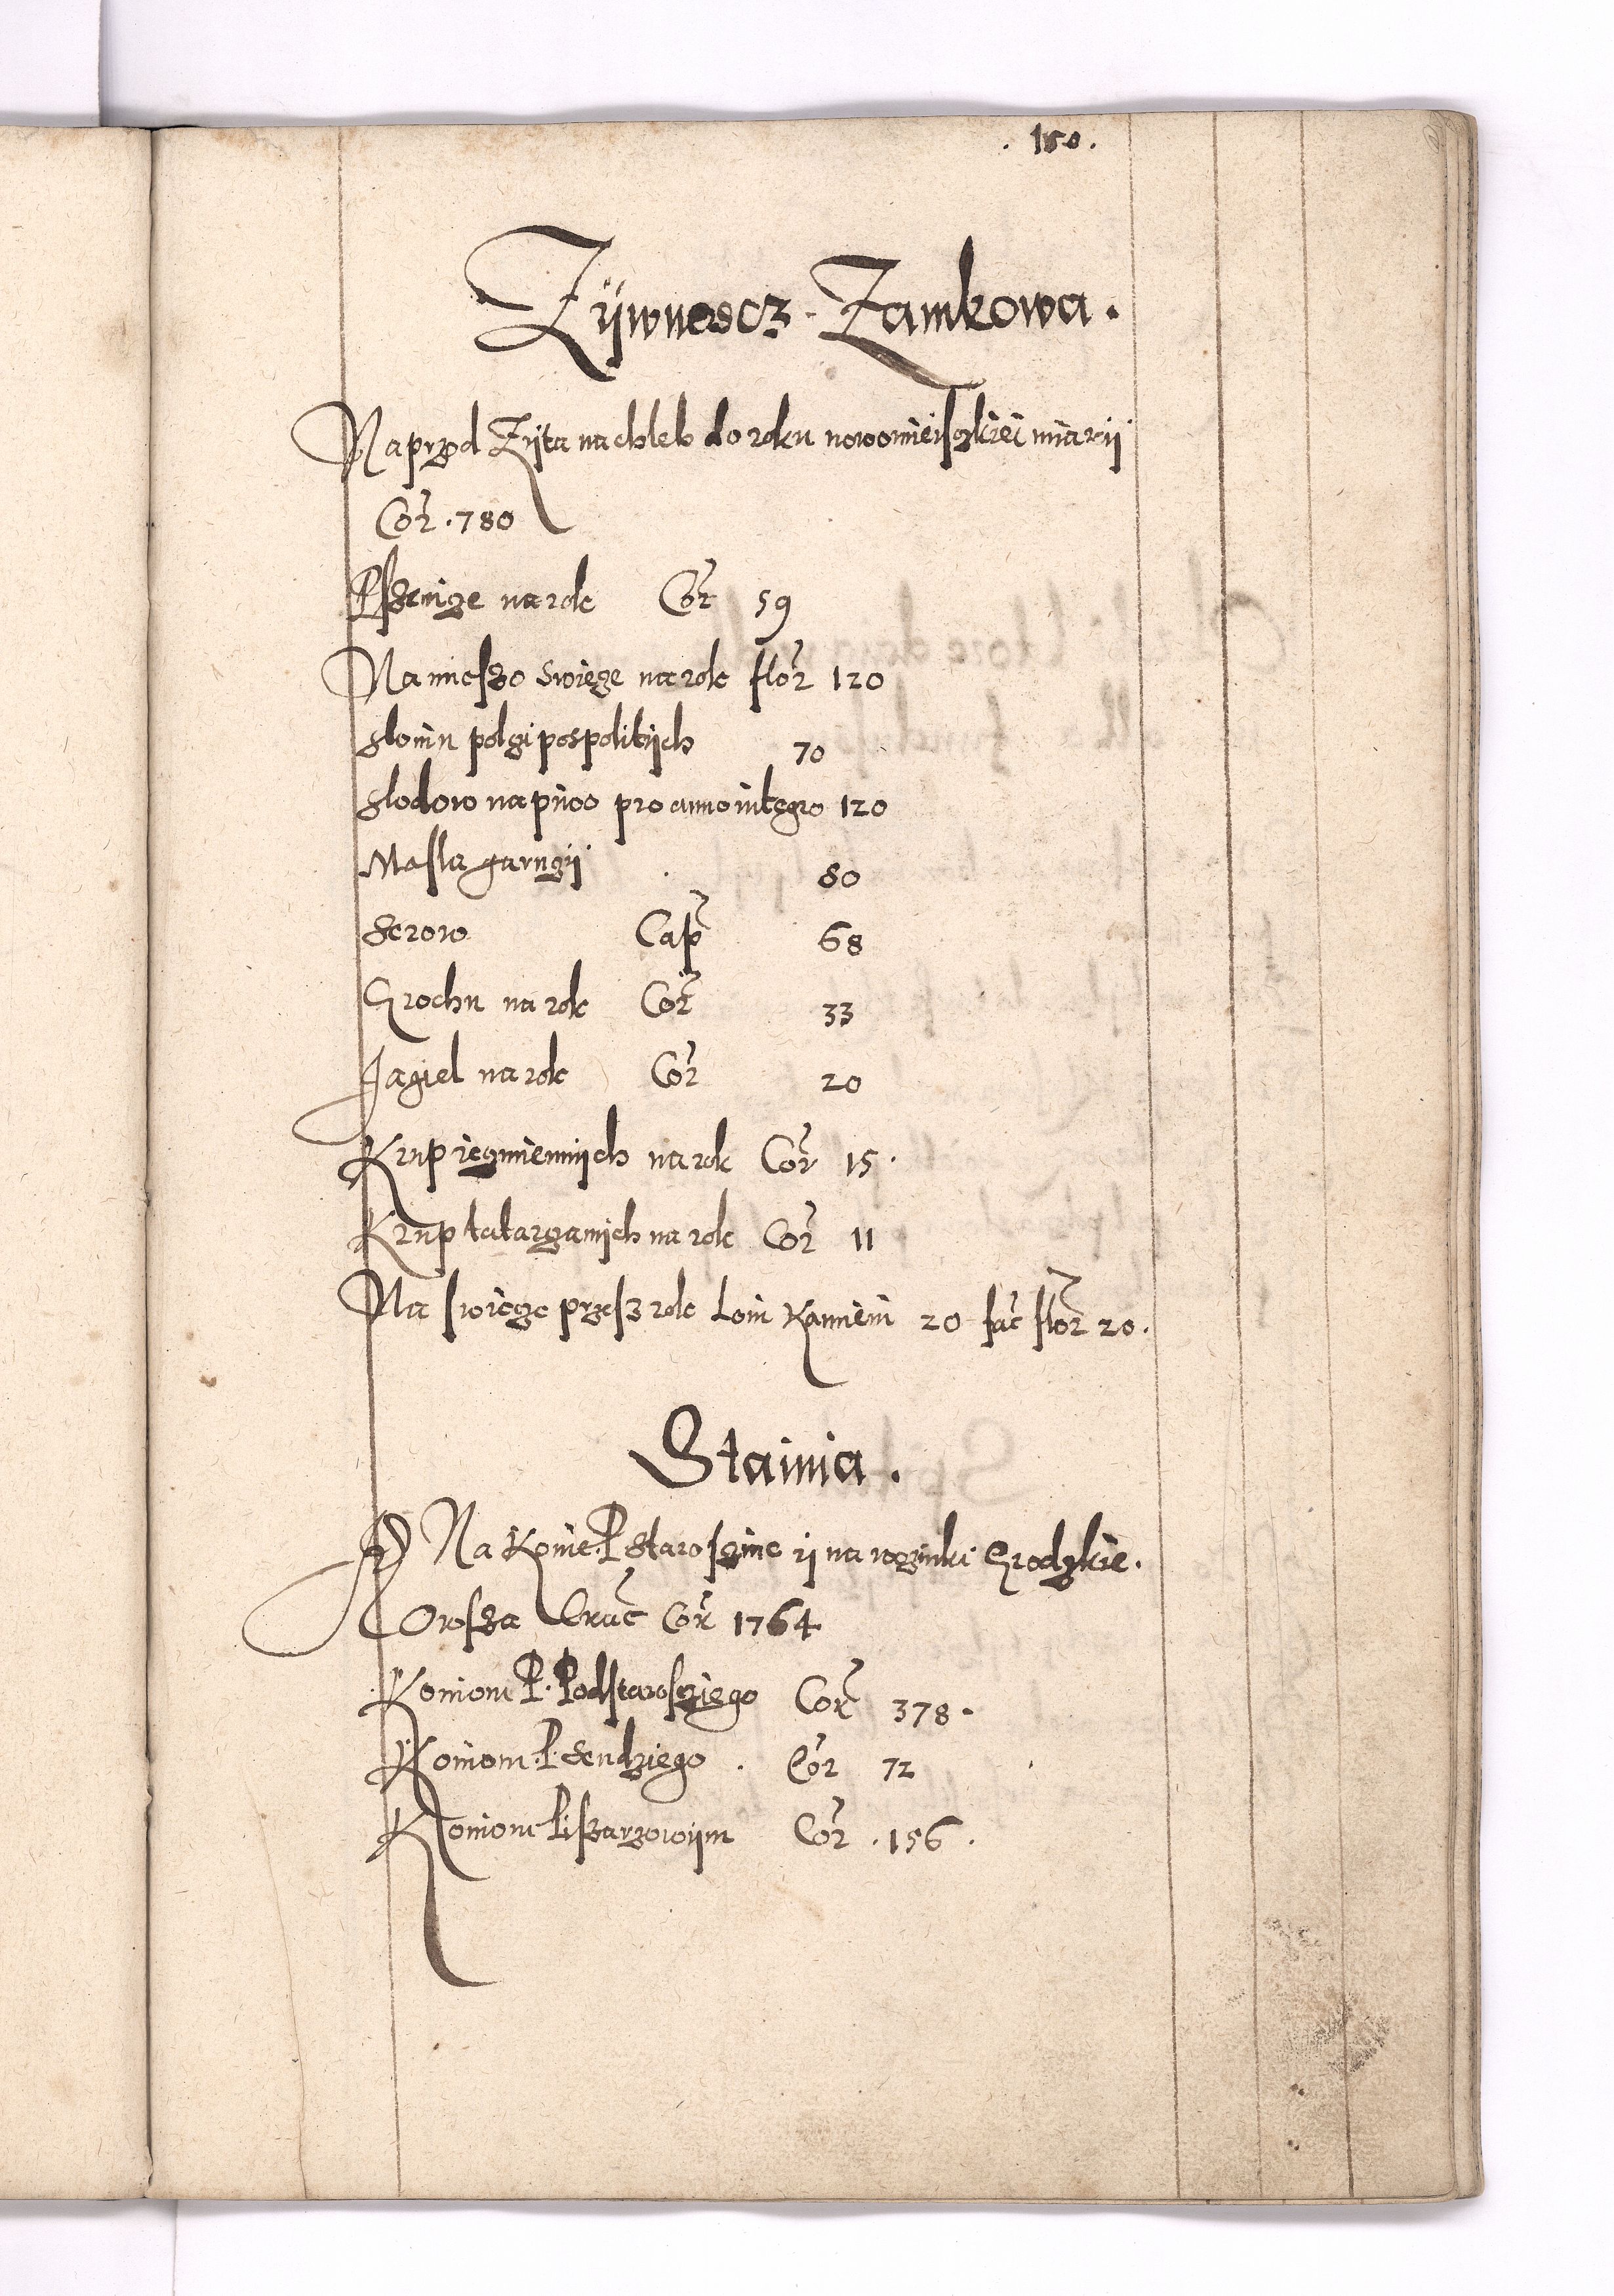 . 150 .
Zÿwnoscz Zamkowa .
Naprzod Zÿta na chleb do roku nowomieisczkiei miarÿ
Cor . 780
Pszenicze na rok Cor 59
Na mieszo swieze na rok flor 120
Slonin polczi pospolitÿch 70
Slodow na piwo pro anno integro 120
Masla garnczÿ 80
Serow Casp 68
Grochu na rok Cor 33
Jagiel na rok Cor 20
Krup ieczmiennÿch na rok Cor 15 .
Krup tatarczanÿch na rok Cor 11
Na swiecze przesz rok Loiu Kamieni 20 fac flor 20 .
Stainia .
Na Konie P. Starosczine ÿ na woznki Grodzkie .
Orosza Cruc Cor 1764
Koniom P. Podstaroscziego Cor 378 .
Koniom P. Sendziego . Cor 72
Koniom Piszarzowÿm Cor . 156 .